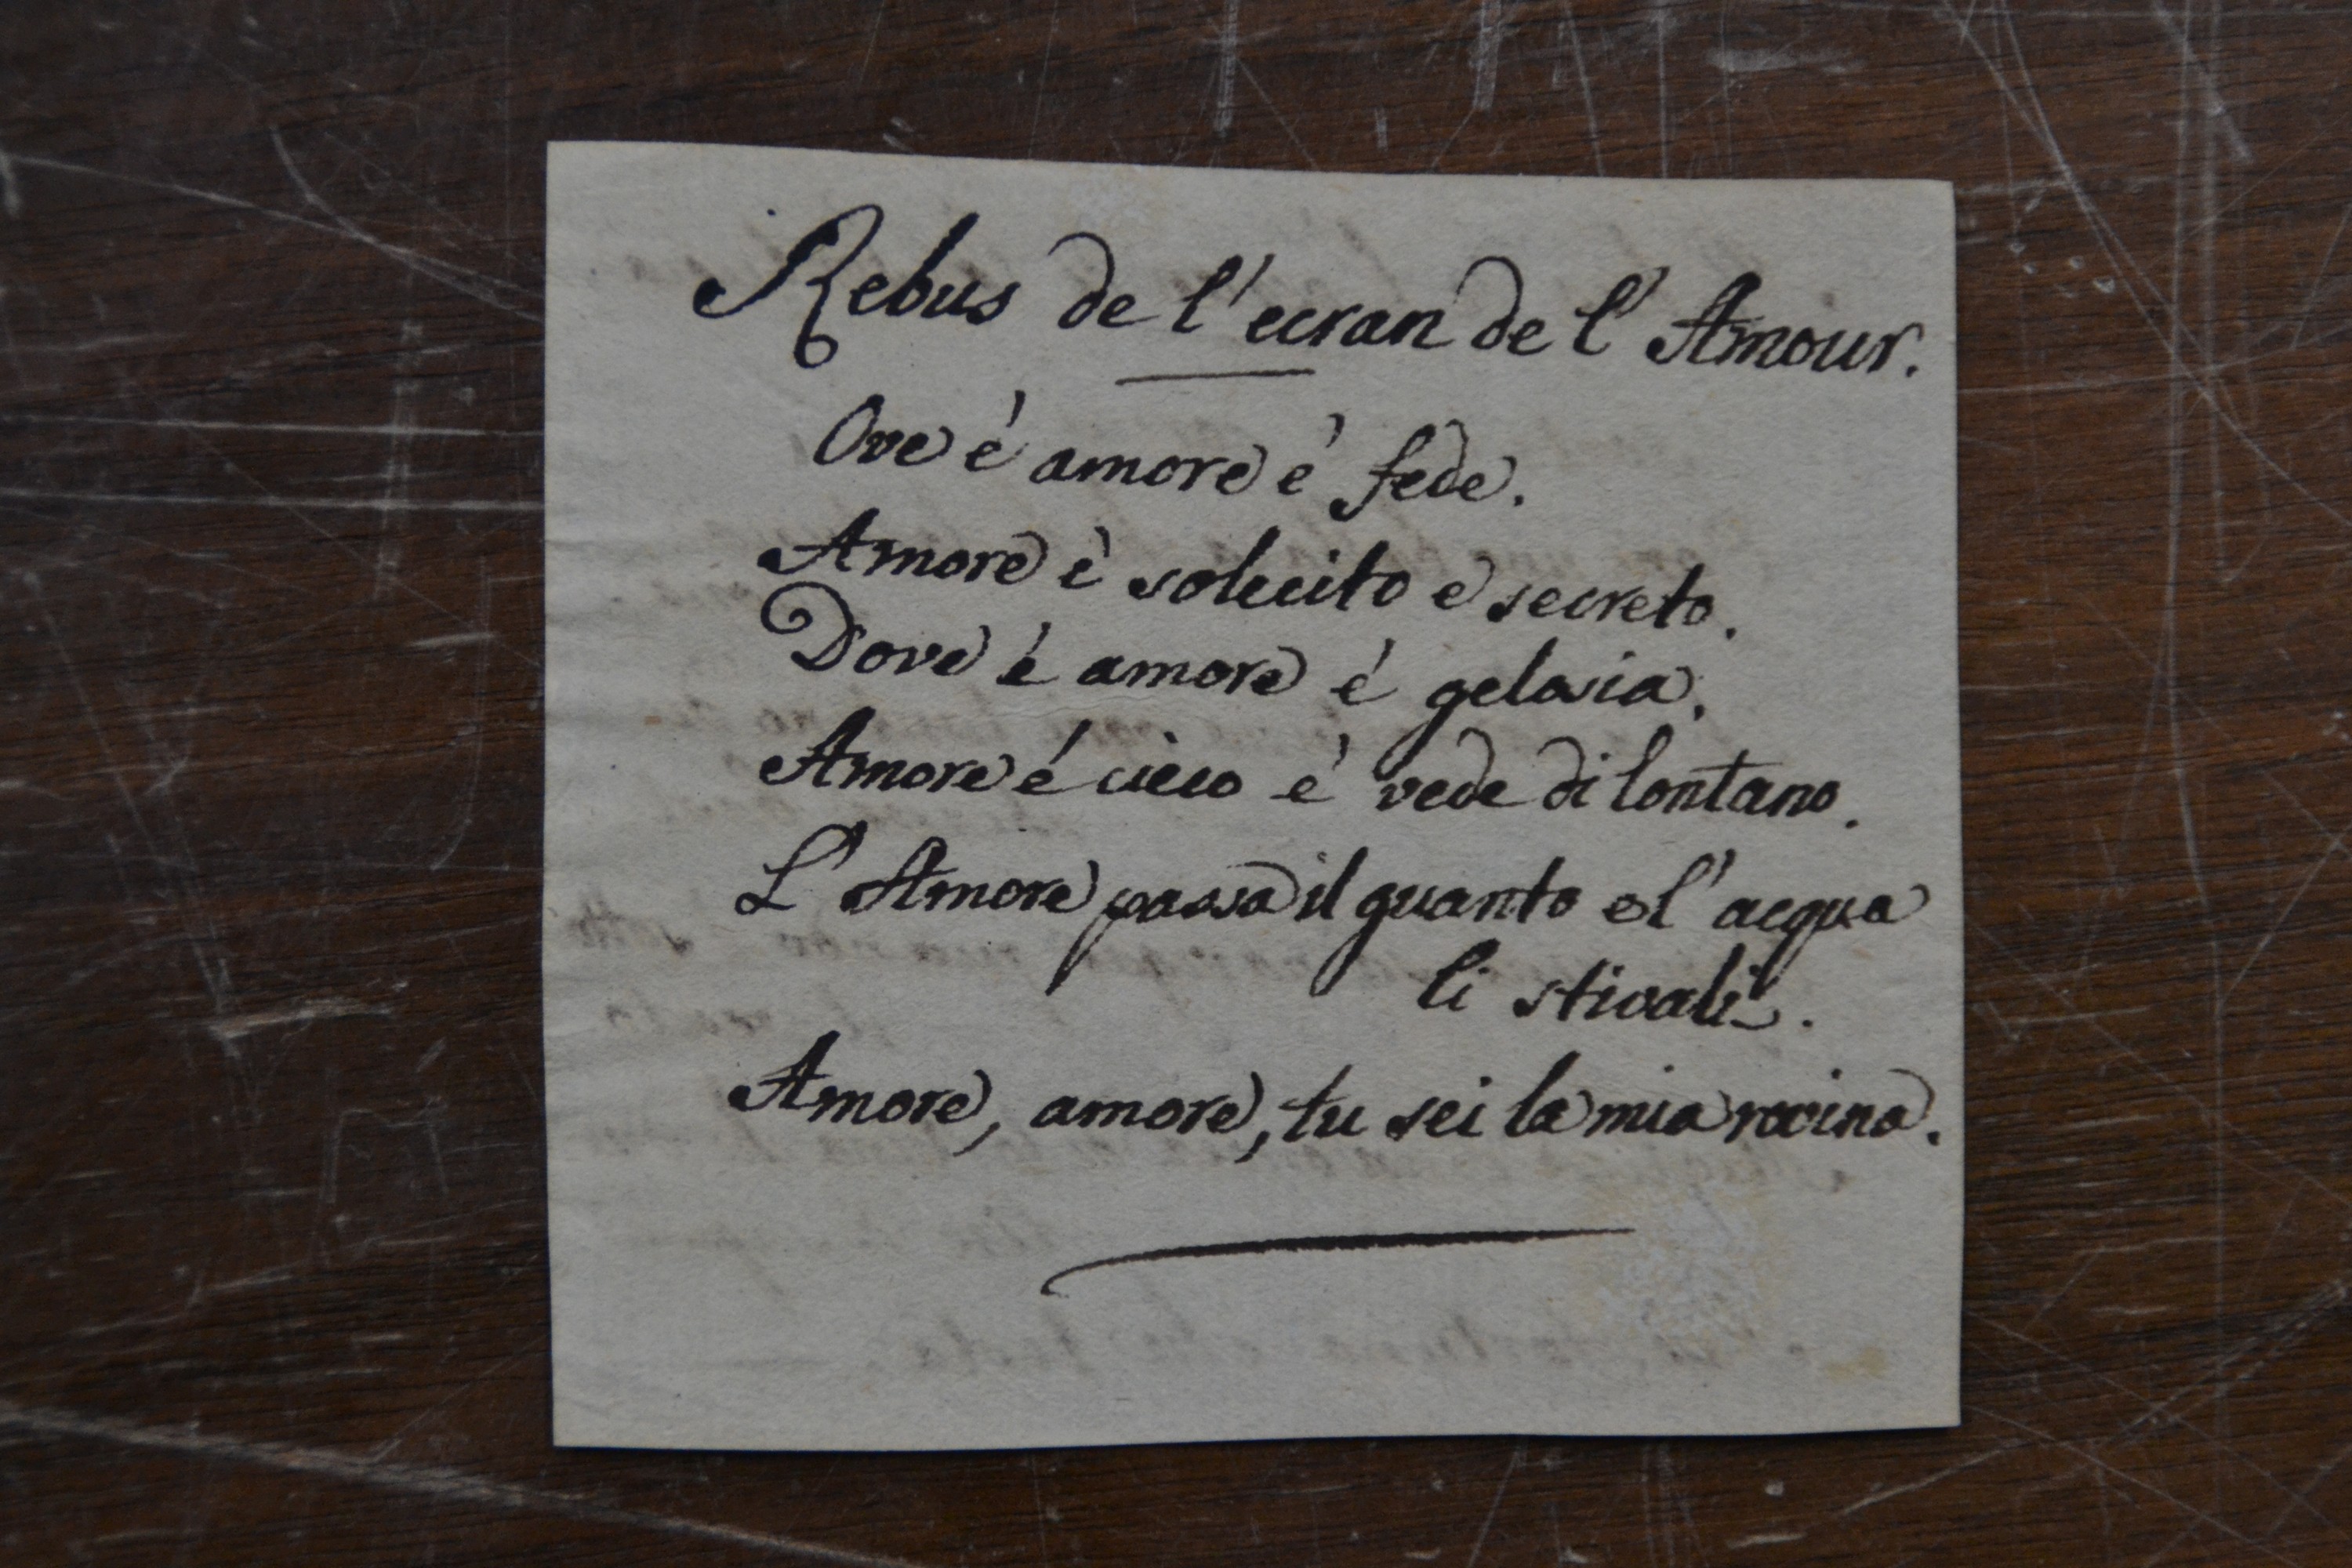 Rebus de l'ecran de l'Amour.
Ove è amore è fede.
Amore è solecito e secreto.
Dove è amore é gelosia.
Amore é cieco è vede di lontano.
L'Amore passa il guanto e l'acqua
li stivali.
Amore, amore, tu sei la mia rovina.